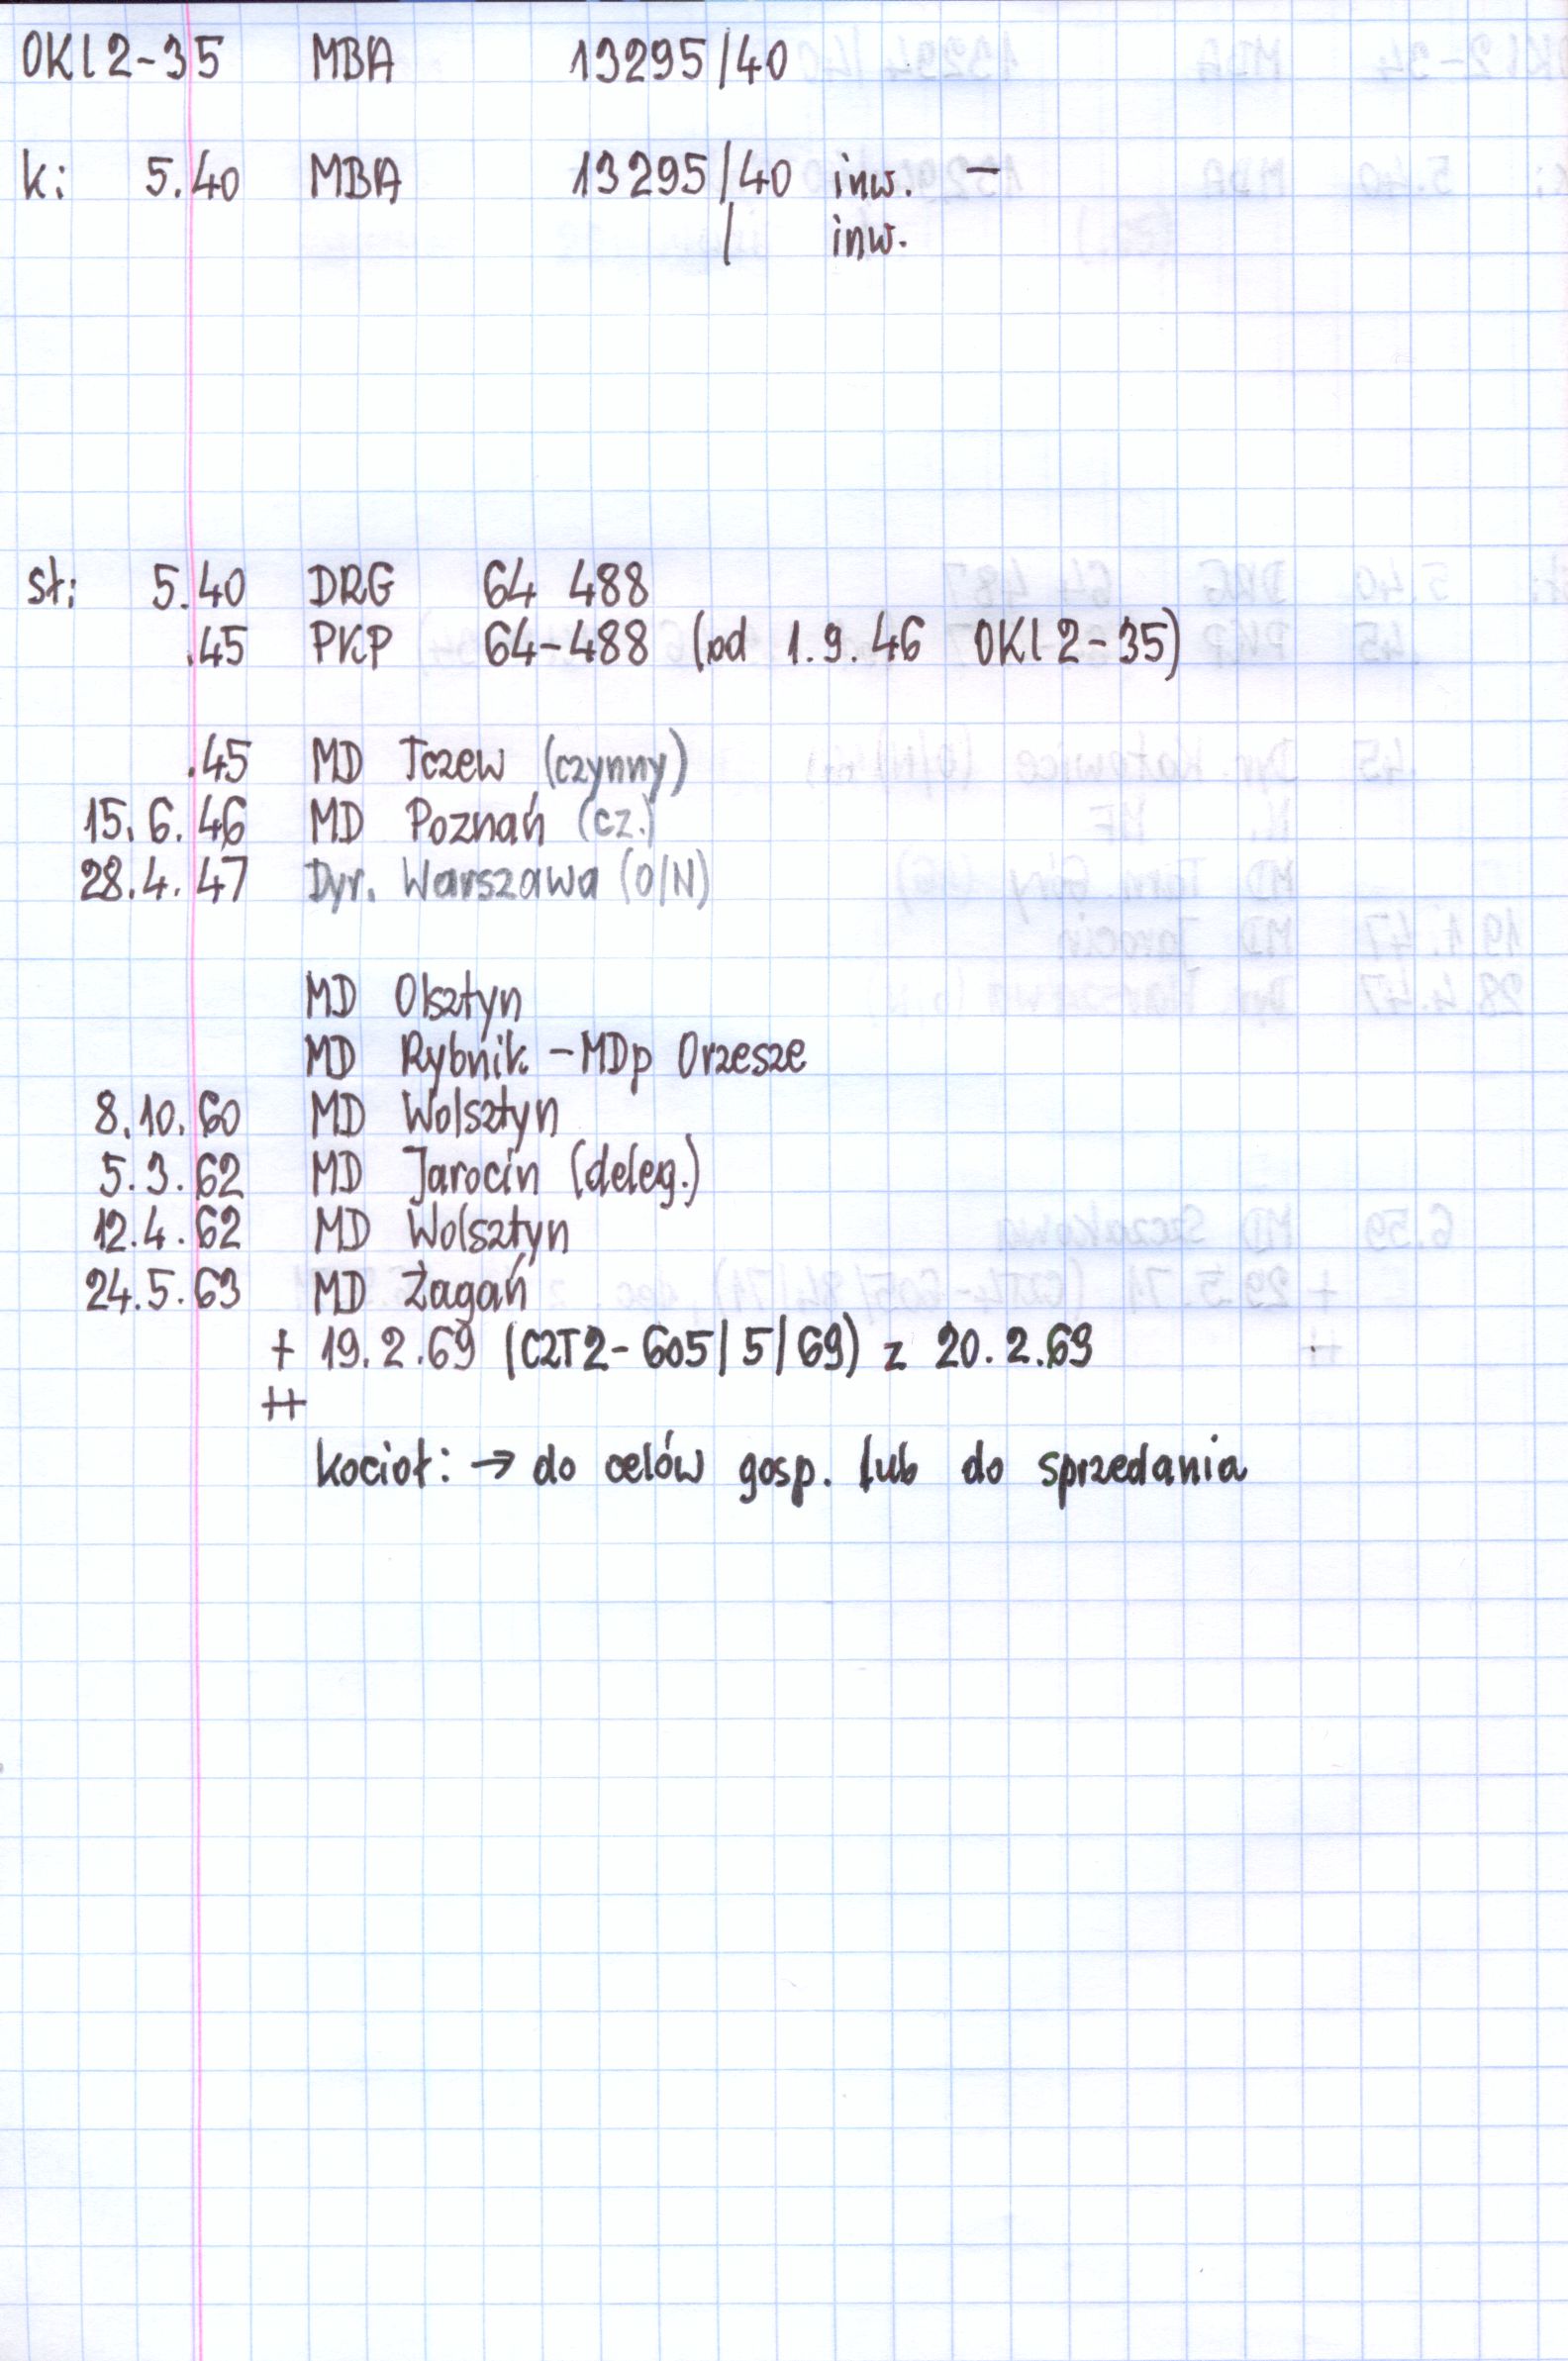 OKl2-35 MBA 13295/40
k: 5.40 MBA 13295/40 inw. –
/ inw.
st: 5.40 DRG 64 488
.45 PKP 64-488 (od 1.9.46 OKl2-35)
.45 MD Tczew (czynny)
15.6.46 MD Poznań (cz.)
28.4.47 Dyr. Warszawa (O/N)
MD Olsztyn
MD Rybnik – MDp Orzesze
8.10.60 MD Wolsztyn
5.3.62 MD Jarocin (deleg.)
12.4.62 MD Wolsztyn
24.5.63 MD Żagań
+ 19.2.69 (C2T2-605/5/69) z 20.2.69
++
kocioł: → do celów gosp. lub do sprzedania